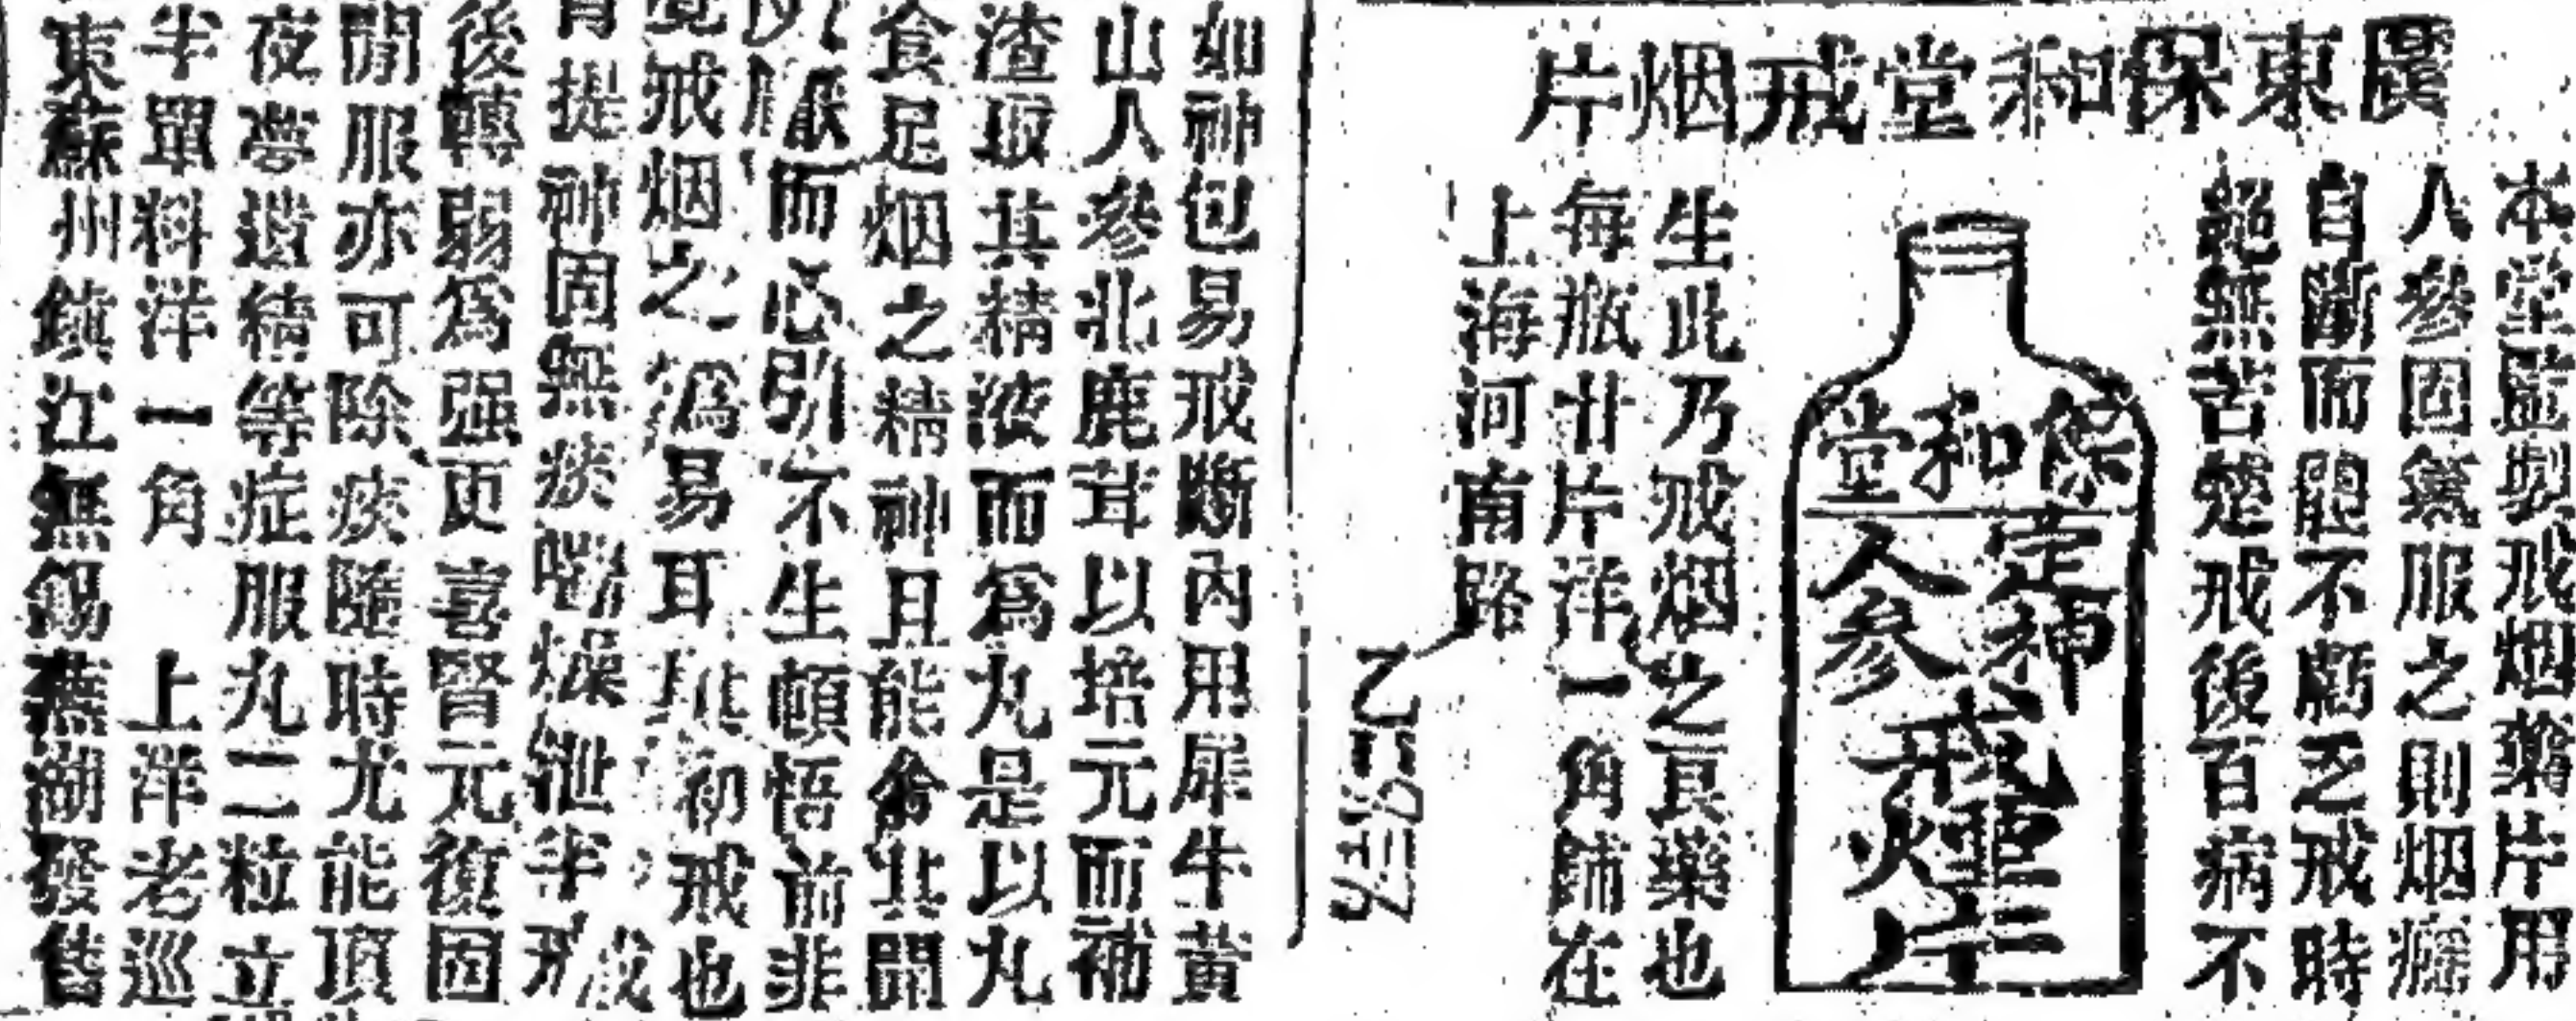 廣東保和堂戒烟片
本堂監製戒烟藥片用
人參固氣服之則烟癮
自斷而體不虧乏戒時
絕無苦楚戒後百病不
保和堂
定神
人參
戒煙片
生此乃戒烟之良藥也
每瓶廿片洋一角餙在
上海河南路
如神包易戒斷內用犀牛黃
山人參北鹿茸以培元而補
渣取其精液而為丸是以丸
食足烟之精神且能令其聞
厭而心引不生頓悟前非
覺戒烟之為易耳其初戒也
提神固無痰嗽燥泄半
後轉弱為强更喜腎元復固
閒服亦可除痰隨時尤能頂
夜夢遺精等症服丸二粒立
半單料洋一角 上洋老巡
東蘇州鎮江無錫蕪湖發售